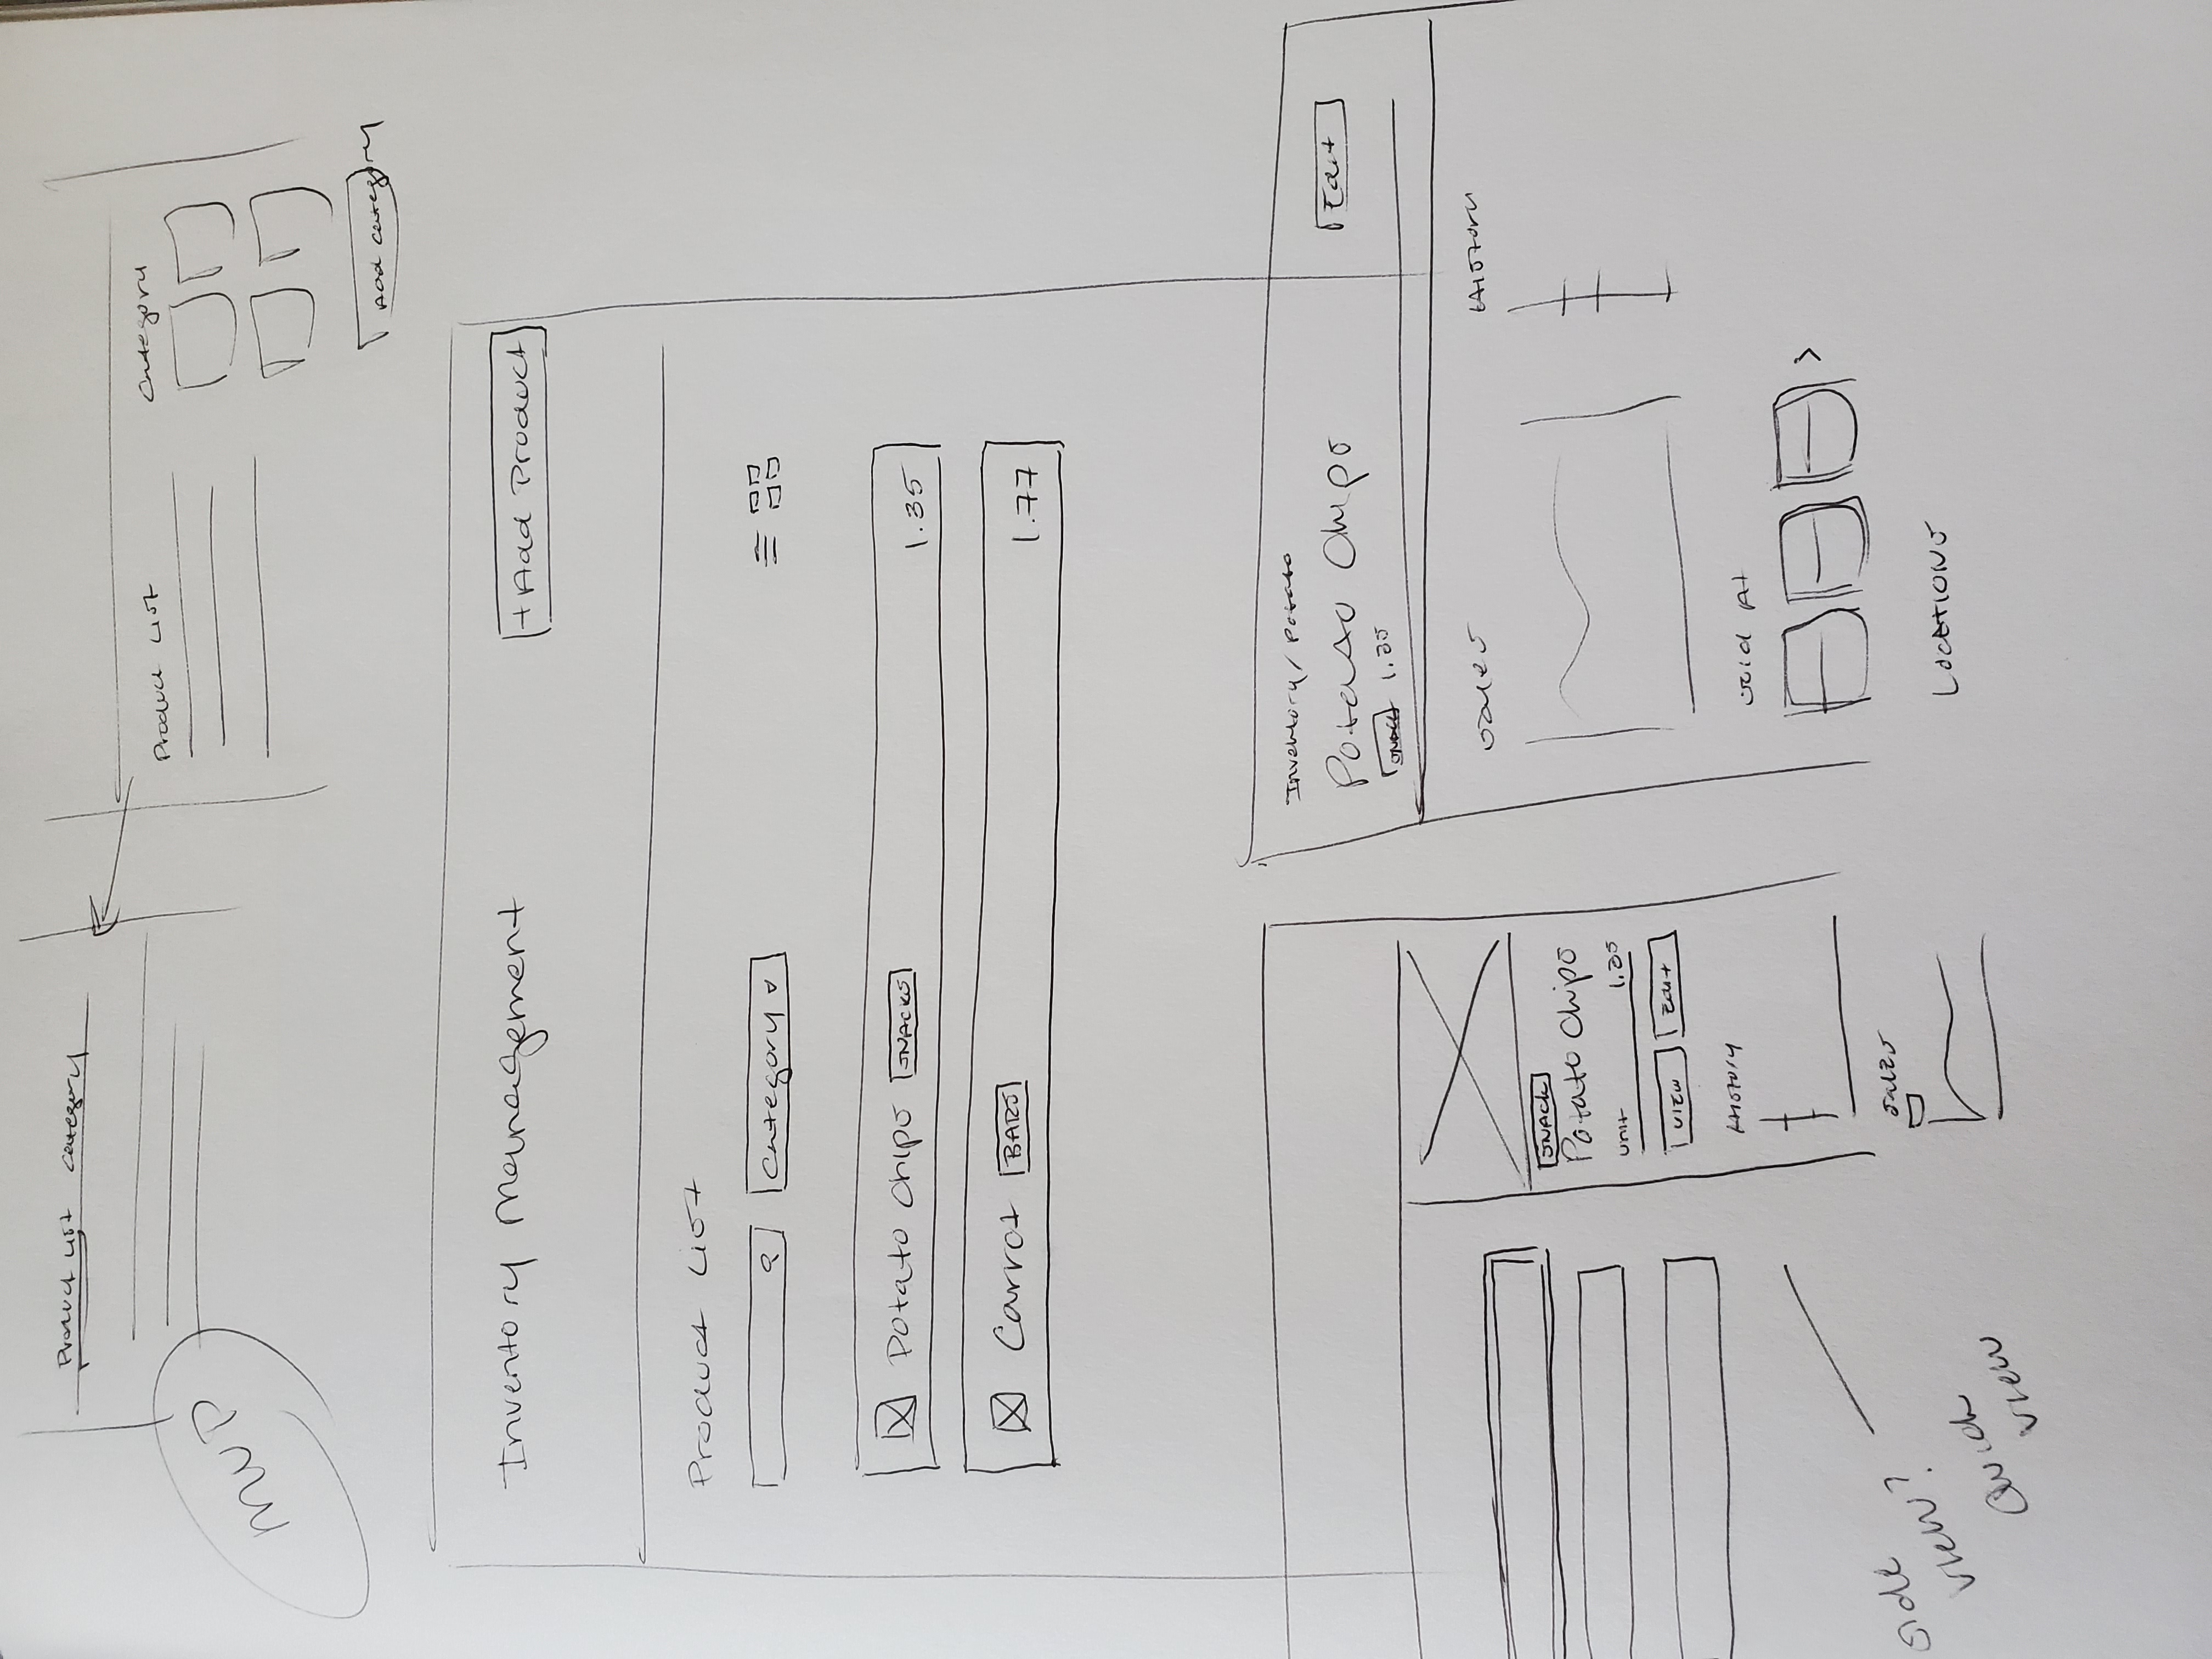 Product List Category
MVP
Product List
Category
Add Category
Inventory Management
+ Add Product
Product List
Category
Potato Chips SNACKS 1.35
Carrot BARS 1.77
SNACK
Potato Chips
unit 1.35
VIEW Edit
History
Sales
side
view?
Quick
view
Inventory / Potato
Potato Chips
Edit
SNACK 1.35
Sales
History
Sold At
LOCATIONS